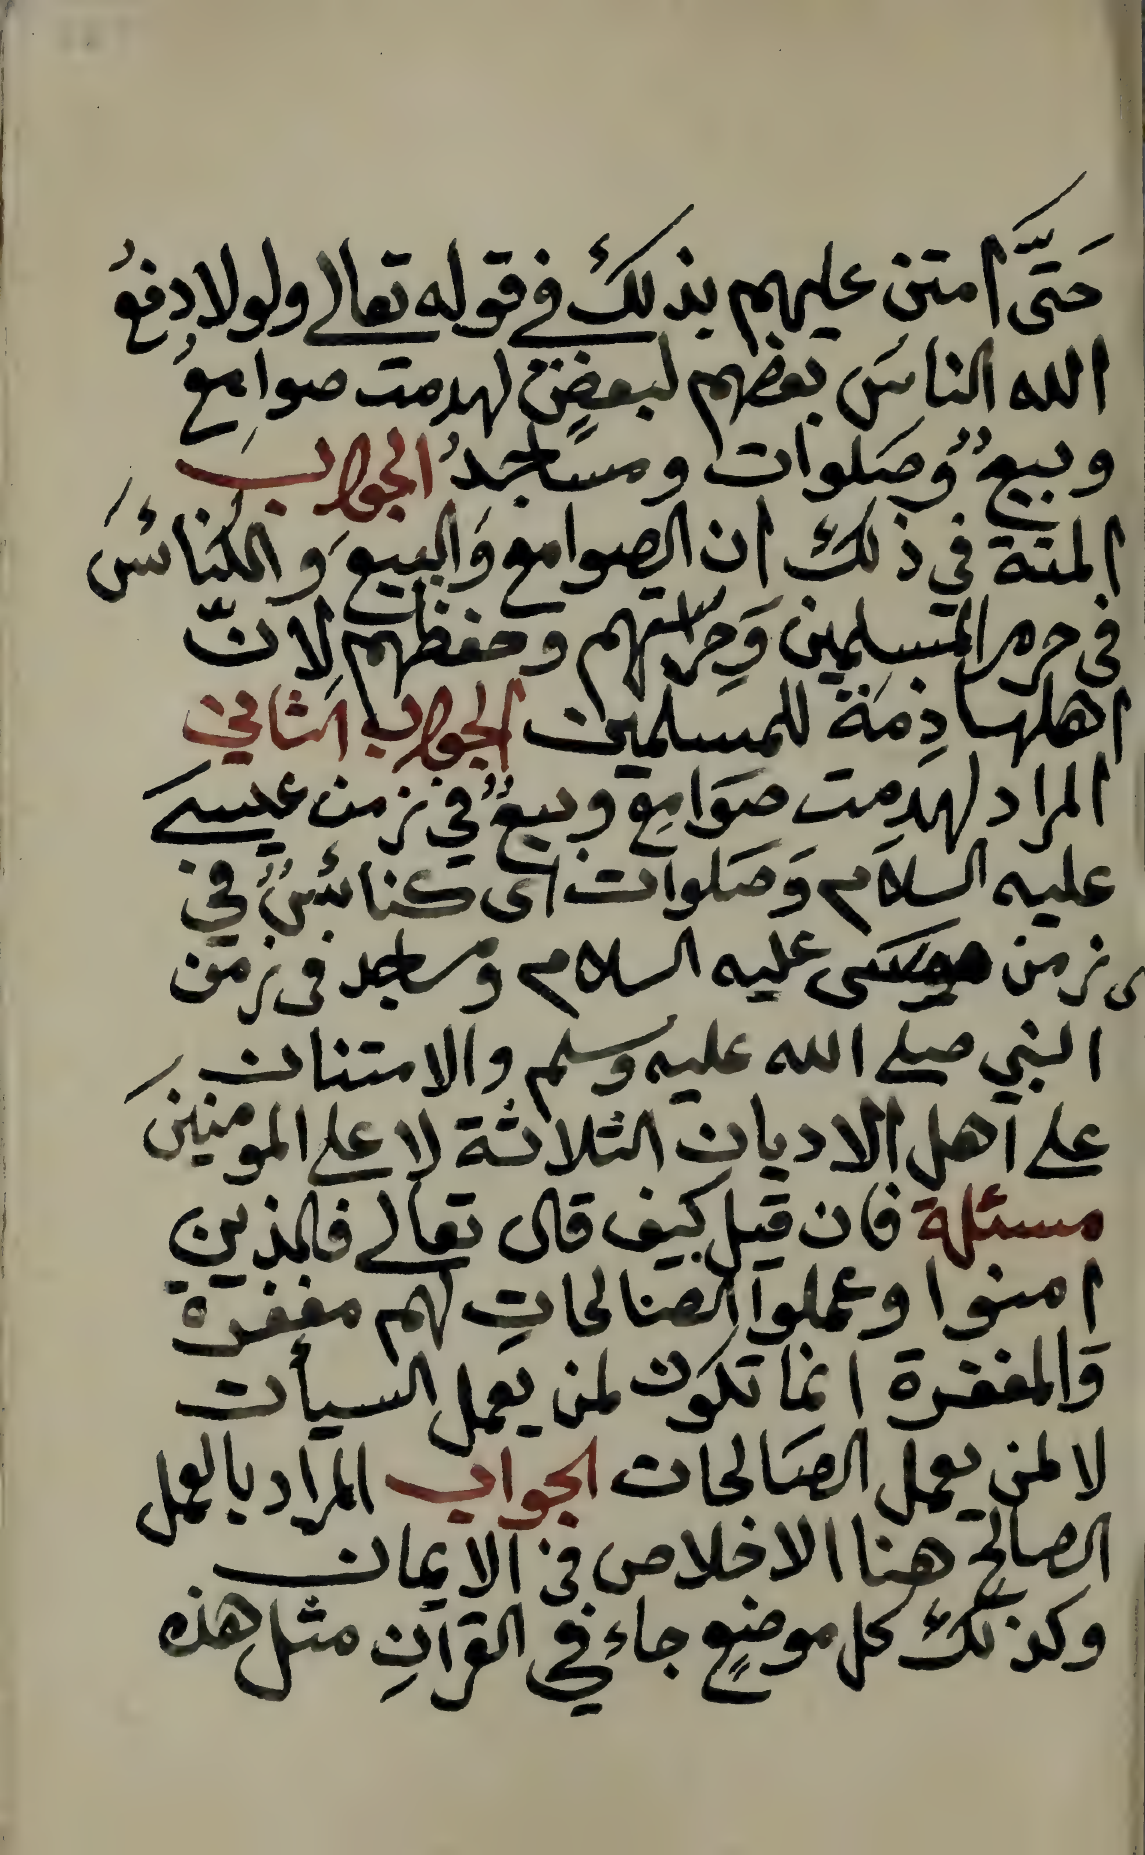 حَتَّى امتن عليهم بذلك في قوله تعالى ولولا دفعُ
الله الناسَ بعضهم لبعضٍ لهدمت صوامِعُ
وبيعٌ وصَلوات ومساجدُ الجواب
المنة في ذلك ان الصوامع وَالبيعَ وَالكنائسَ
في حرم المسلمين وَحِرَاستهم وحفظهم لِانّ
اهلها ذِمَة للمسلمين الجواب الثاني
المراد لهدِمت صَوَامِع وبيعٌ في زمن عيسى
عليه السلام وَصَلوات اى كنائسٌ في
زمن موسى عليه السلام ومساجد فى زمن
النبي صلى الله عليه وسلم والامتنان
على اهل الاديان الثلاثة لا على المومنين
مسئلة فان قيل كيف قال تعالى فالذين
امنوا وعملوا الصالحاتِ لهم مغفرة
وَالمغفرة انما تكون لمن يعمل السيأت
لا لمن يعمل الصَالحات الجواب المراد بالعمل
الصالح هنا الاخلاص في الايمان
وكذلك كل موضعٍ جاء في القرآنِ مثل هذه